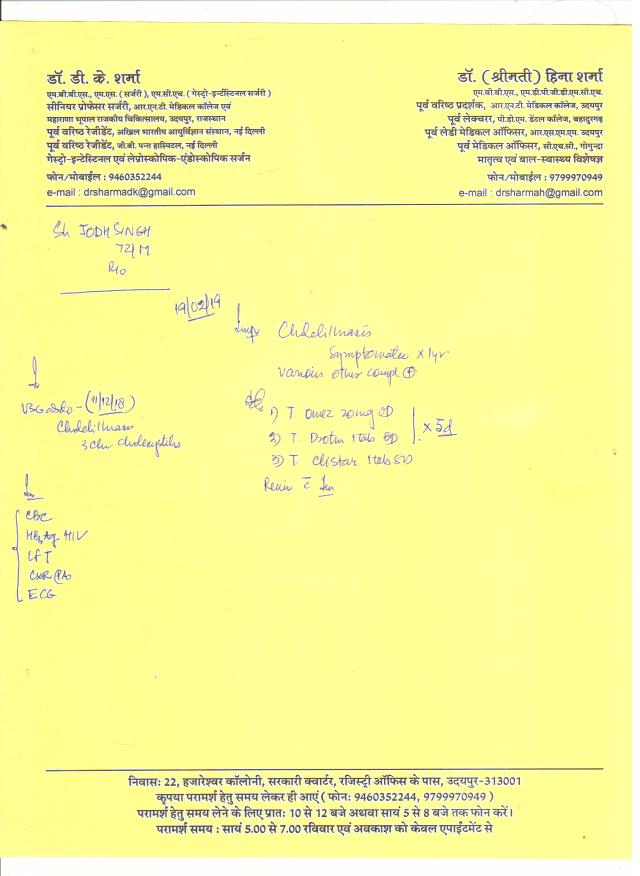 डॉ. डी. के. शर्मा
एम.बी.बी.एस., एम.एस. ( सर्जरी ), एम.सी.एच. ( गेस्ट्रो-इन्टेस्टिनल सर्जरी )
सीनियर प्रोफेसर सर्जरी, आर.एन.टी. मेडिकल कॉलेज एवं
महाराणा भूपाल राजकीय चिकित्सालय, उदयपुर, राजस्थान
पूर्व वरिष्ठ रेजीडेंट, अखिल भारतीय आयुर्विज्ञान संस्थान, नई दिल्ली
पूर्व वरिष्ठ रेजीडेंट, जी.बी. पन्त हास्पिटल, नई दिल्ली
गेस्ट्रो-इन्टेस्टिनल एवं लेप्रोस्कोपिक-एंडोस्कोपिक सर्जन
फोन/मोबाईल : 9460352244
e-mail : drsharmadk@gmail.com
डॉ. (श्रीमती) हिना शर्मा
एम.बी.बी.एस., एम.डी.पी.जी.डी.एम.सी.एच.
पूर्व वरिष्ठ प्रदर्शक, आर.एन.टी. मेडिकल कॉलेज, उदयपुर
पूर्व लेक्चरर, पी.डी.एम. डेंटल कॉलेज, बहादुरगढ़
पूर्व लेडी मेडिकल ऑफिसर, आर.एस.एम.एम. उदयपुर
पूर्व मेडिकल ऑफिसर, सी.एच.सी., गोगुन्दा
मातृत्व एवं बाल-स्वास्थ्य विशेषज्ञ
फोन/मोबाईल : 9799970949
e-mail : drsharmah@gmail.com
Sh JODH SINGH
72/M
R/o
19/02/19
Imp Cholelithiasis
Symptomatic x 1yr.
Various other compl ⊕
1) T. Omez 20mg OD
2) T. Drotin 1 tab BD
3) T. Clistar 1 tab BD
x 5d
Review c̄ Inv
USG abdo - (11/12/18)
Cholelithiasis
c̄ Chr cholecystitis
Inv
CBC
HBsAg HIV
LFT
CXR (PA)
ECG
निवास: 22, हजारेश्वर कॉलोनी, सरकारी क्वार्टर, रजिस्ट्री ऑफिस के पास, उदयपुर-313001
कृपया परामर्श हेतु समय लेकर ही आएं ( फोन: 9460352244, 9799970949 )
परामर्श हेतु समय लेने के लिए प्रात: 10 से 12 बजे अथवा सायं 5 से 8 बजे तक फोन करें।
परामर्श समय : सायं 5.00 से 7.00 रविवार एवं अवकाश को केवल एपाईटमेंट से